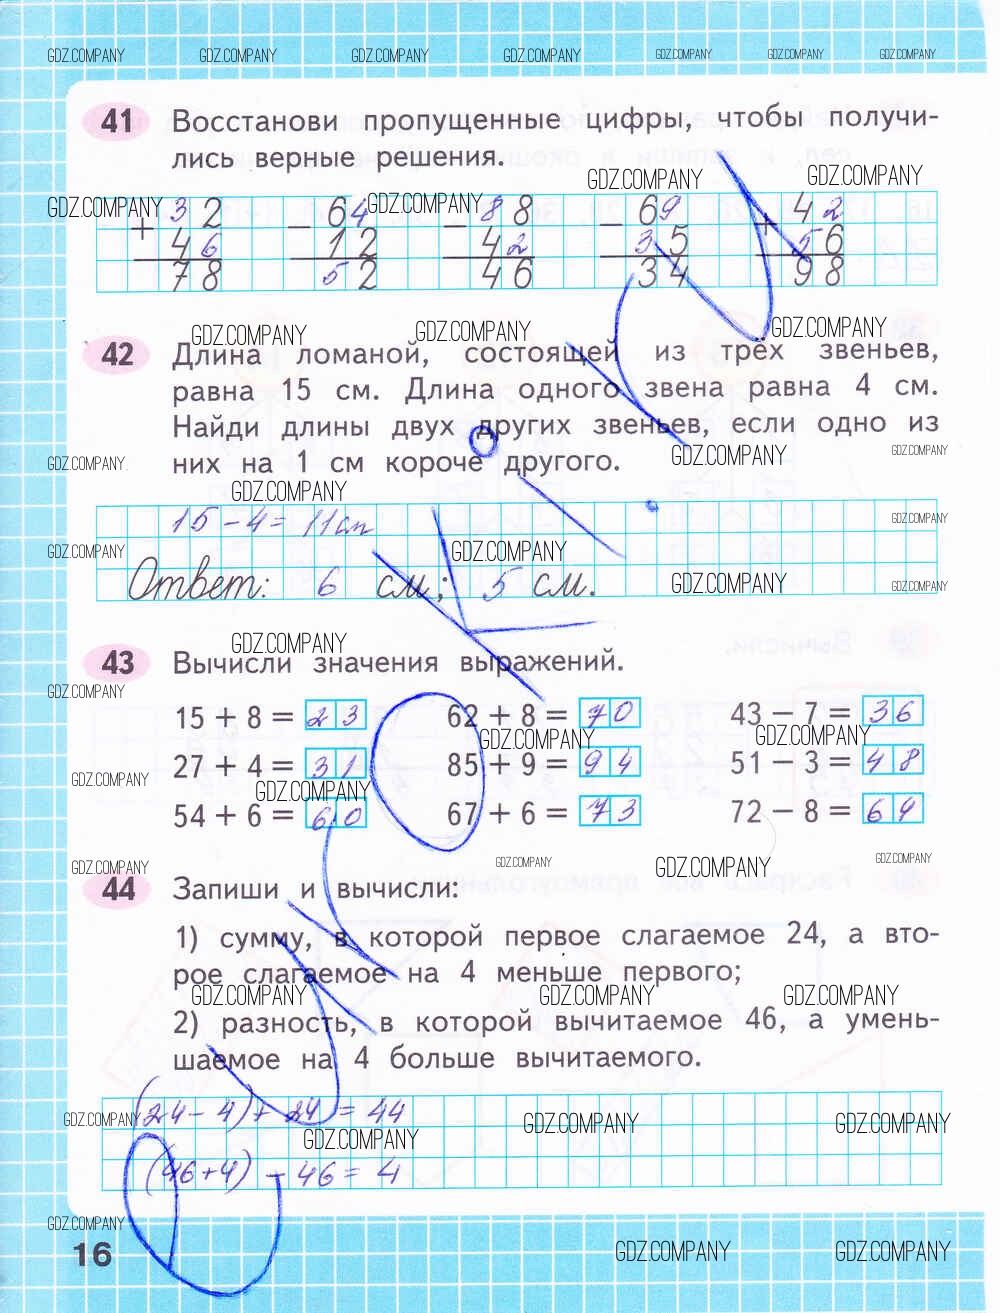 GDZ.COMPANY GDZ.COMPANY GDZ.COMPANY GDZ.COMPANY GDZ.COMPANY GDZ.COMPANY GDZ.COMPANY
41 Восстанови пропущенные цифры, чтобы получи-
лись верные решения.
GDZ.COMPANY GDZ.COMPANY
GDZ.COMPANY GDZ.COMPANY
+ 32 − 64 − 88 − 69 + 42
46 12 42 35 56
78 52 46 34 98
GDZ.COMPANY GDZ.COMPANY GDZ.COMPANY
42 Длина ломаной, состоящей из трёх звеньев,
равна 15 см. Длина одного звена равна 4 см.
Найди длины двух других звеньев, если одно из
GDZ.COMPANY GDZ.COMPANY GDZ.COMPANY
них на 1 см короче другого.
GDZ.COMPANY
15 - 4 = 11 см
GDZ.COMPANY
GDZ.COMPANY GDZ.COMPANY
Ответ: 6 см; 5 см.
GDZ.COMPANY GDZ.COMPANY
GDZ.COMPANY
43 Вычисли значения выражений.
GDZ.COMPANY
15 + 8 = 23 62 + 8 = 70 43 − 7 = 36
GDZ.COMPANY GDZ.COMPANY
27 + 4 = 31 85 + 9 = 94 51 − 3 = 48
GDZ.COMPANY GDZ.COMPANY
54 + 6 = 60 67 + 6 = 73 72 − 8 = 64
GDZ.COMPANY GDZ.COMPANY GDZ.COMPANY GDZ.COMPANY
44 Запиши и вычисли:
1) сумму, в которой первое слагаемое 24, а вто-
рое слагаемое на 4 меньше первого;
GDZ.COMPANY GDZ.COMPANY GDZ.COMPANY
2) разность, в которой вычитаемое 46, а умень-
шаемое на 4 больше вычитаемого.
(24 - 4) + 24 = 44
GDZ.COMPANY GDZ.COMPANY GDZ.COMPANY
GDZ.COMPANY
(46 + 4) - 46 = 4
GDZ.COMPANY
16 GDZ.COMPANY GDZ.COMPANY